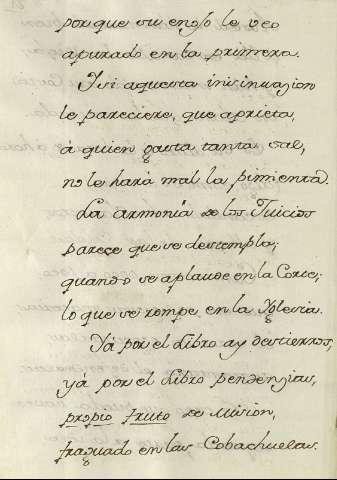 porque su enojo le veo
apurado en la primera.
Y si aquesta insinuazion
le pareciere, que aprieta,
á quien gasta tanta sal,
no le hará mal la pimienta.
La armonía de los Juicios
pareçe que se destempla;
quando se aplaude en la Corte,
lo que se rompe en la Yglesia.
Yá por el Libro ay destierros,
yá por el Libro pendenzias,
propio fruto de Mision,
fraguado en las Cobachuelas.